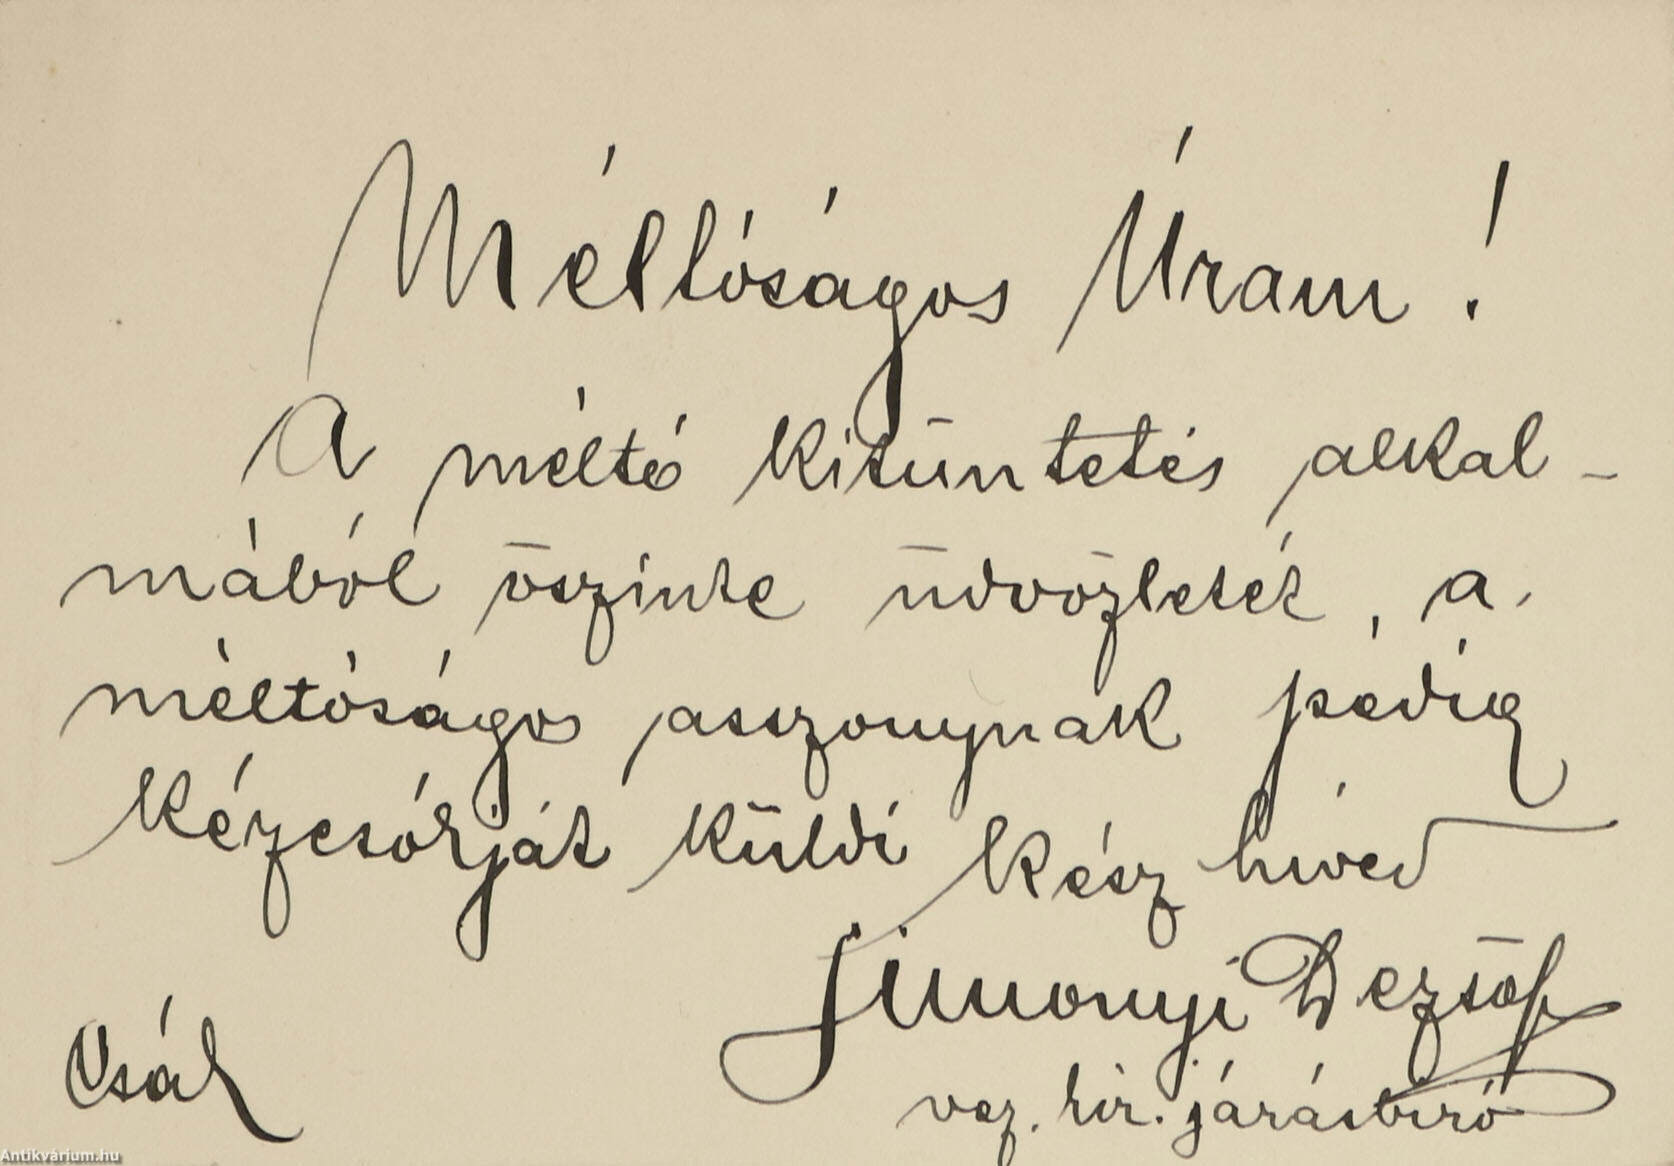 Méltóságos Úram!
A méltó kitüntetés alkal-
mából őszinte üdvözletét, a
méltóságos asszonynak pedig
kézcsókját küldi kész híved
Simonyi Dezső
vez. kir. járásbíró
Csák
Antikvárium.hu